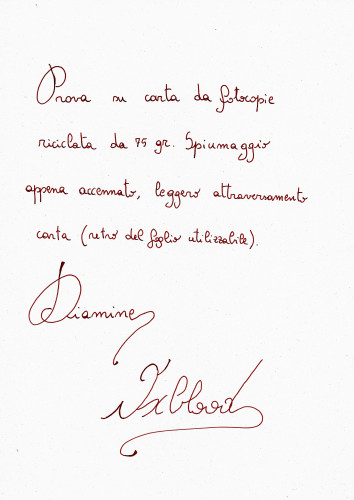 Prova su carta da fotocopie
riciclata da 75 gr. Spiumaggio
appena accennato, leggero attraversamento
carta (retro del foglio utilizzabile).
Diamine
Oxblood